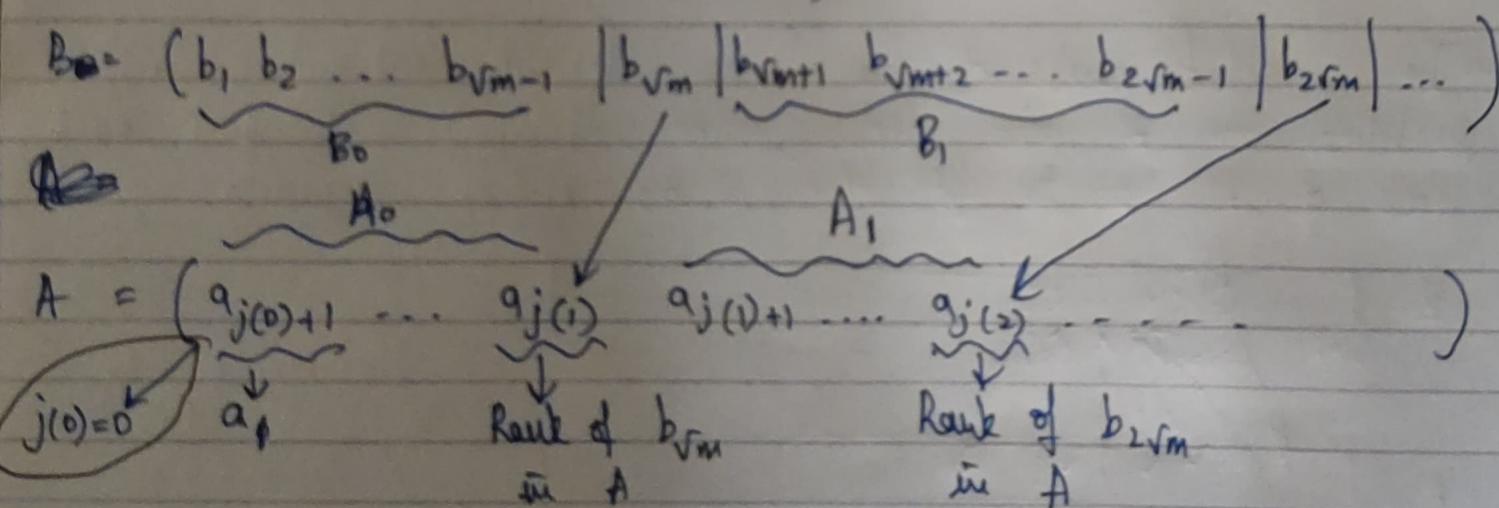 B = (b₁ b₂ ... b√m-1 | b√m | b√m+1 b√m+2 --- b2√m-1 | b2√m | ...)
B₀ B₁
A₀ A₁
A = (aj(0)+1 ... aj(1) aj(1)+1 .... aj(2) ------)
j(0)=0 a₁ Rank of b√m Rank of b2√m
in A in A